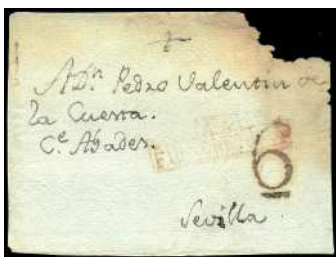 A Dn Pedro Valentin de
la Cuesta.
Ce. Abades.
6
Sevilla.